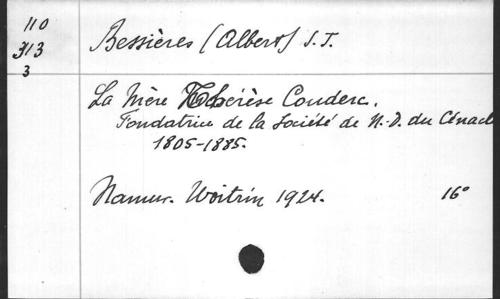 110
313
3
Bessières (Albert) S.J.
La Mère Thérèse Couderc.
Fondatrice de la Société de N.-D. du Cénacl
1805-1885.
Namur. Woitrin 1924. 16°